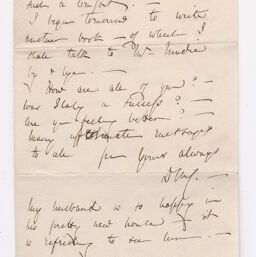 such a comfort. —
I begin tomorrow to write
another book — of which I
shall talk to Mr.
by & bye. —
How are all of you? —
was Italy a success? —
are you feeling better? —
many affectionate messages
to all from yours always

My husband is so happy in
his pretty new house — it
is refreshing to see him. —